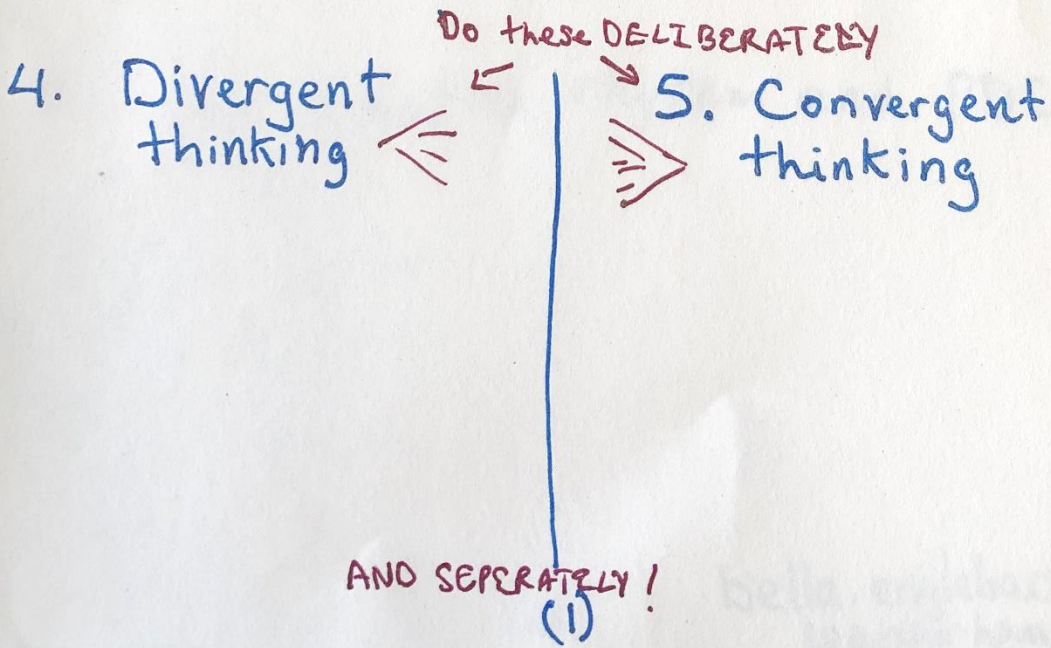 Do these DELIBERATELY
4. Divergent
thinking
5. Convergent
thinking
AND SEPERATELY!
(1)